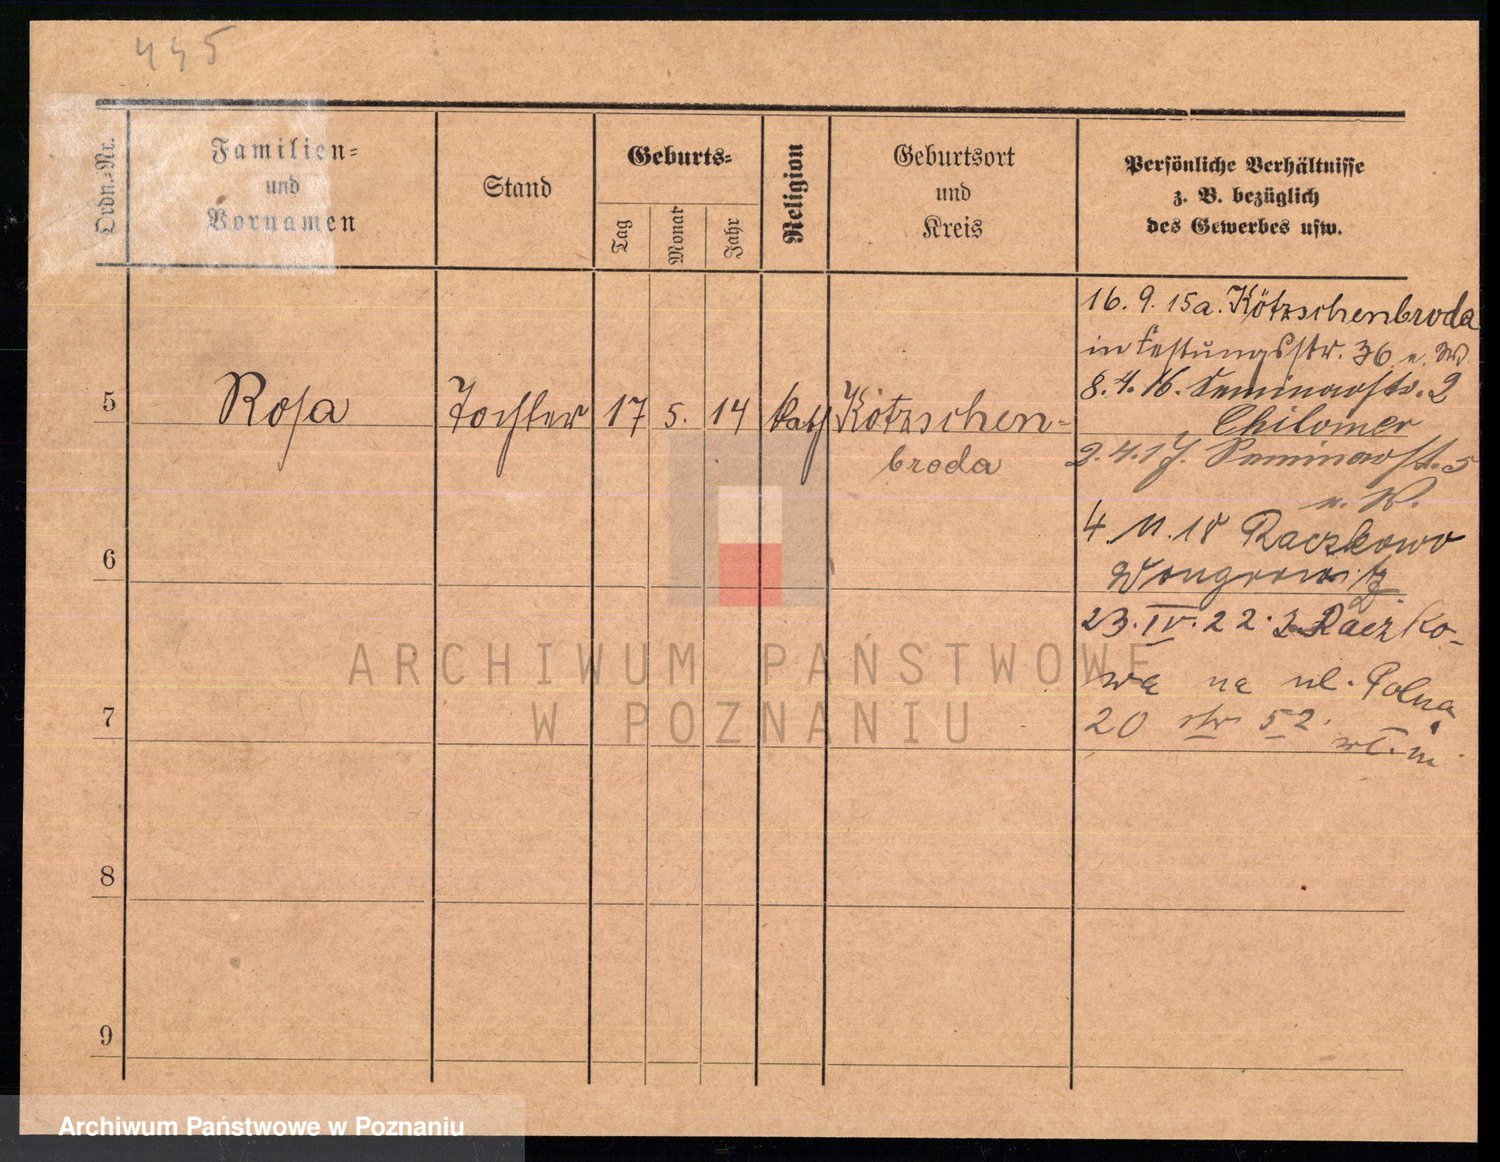 445
Ordn.-Nr.
Familien-
und
Vornamen
Stand
Geburts-
Tag
Monat
Jahr
Religion
Geburtsort
und
Kreis
Persönliche Verhältnisse
z. B. bezüglich
des Gewerbes usw.
5
Rosa
Tochter
17
5.
14
kath
Kötzschen-
broda
16. 9. 15 a. Kötzschenbroda
in Festungsstr. 36 n. W
8. 4. 16. Seminarstr. 2
2. 4. 17. Seminarst. 5
n. W.
4. 11. 18 Raczkowo
Wongrowitz
23. IV. 22. z Raczko-
wa na ul. Polna
20 str 52.
6
7
8
9
ARCHIWUM PAŃSTWOWE
W POZNANIU
Archiwum Państwowe w Poznaniu